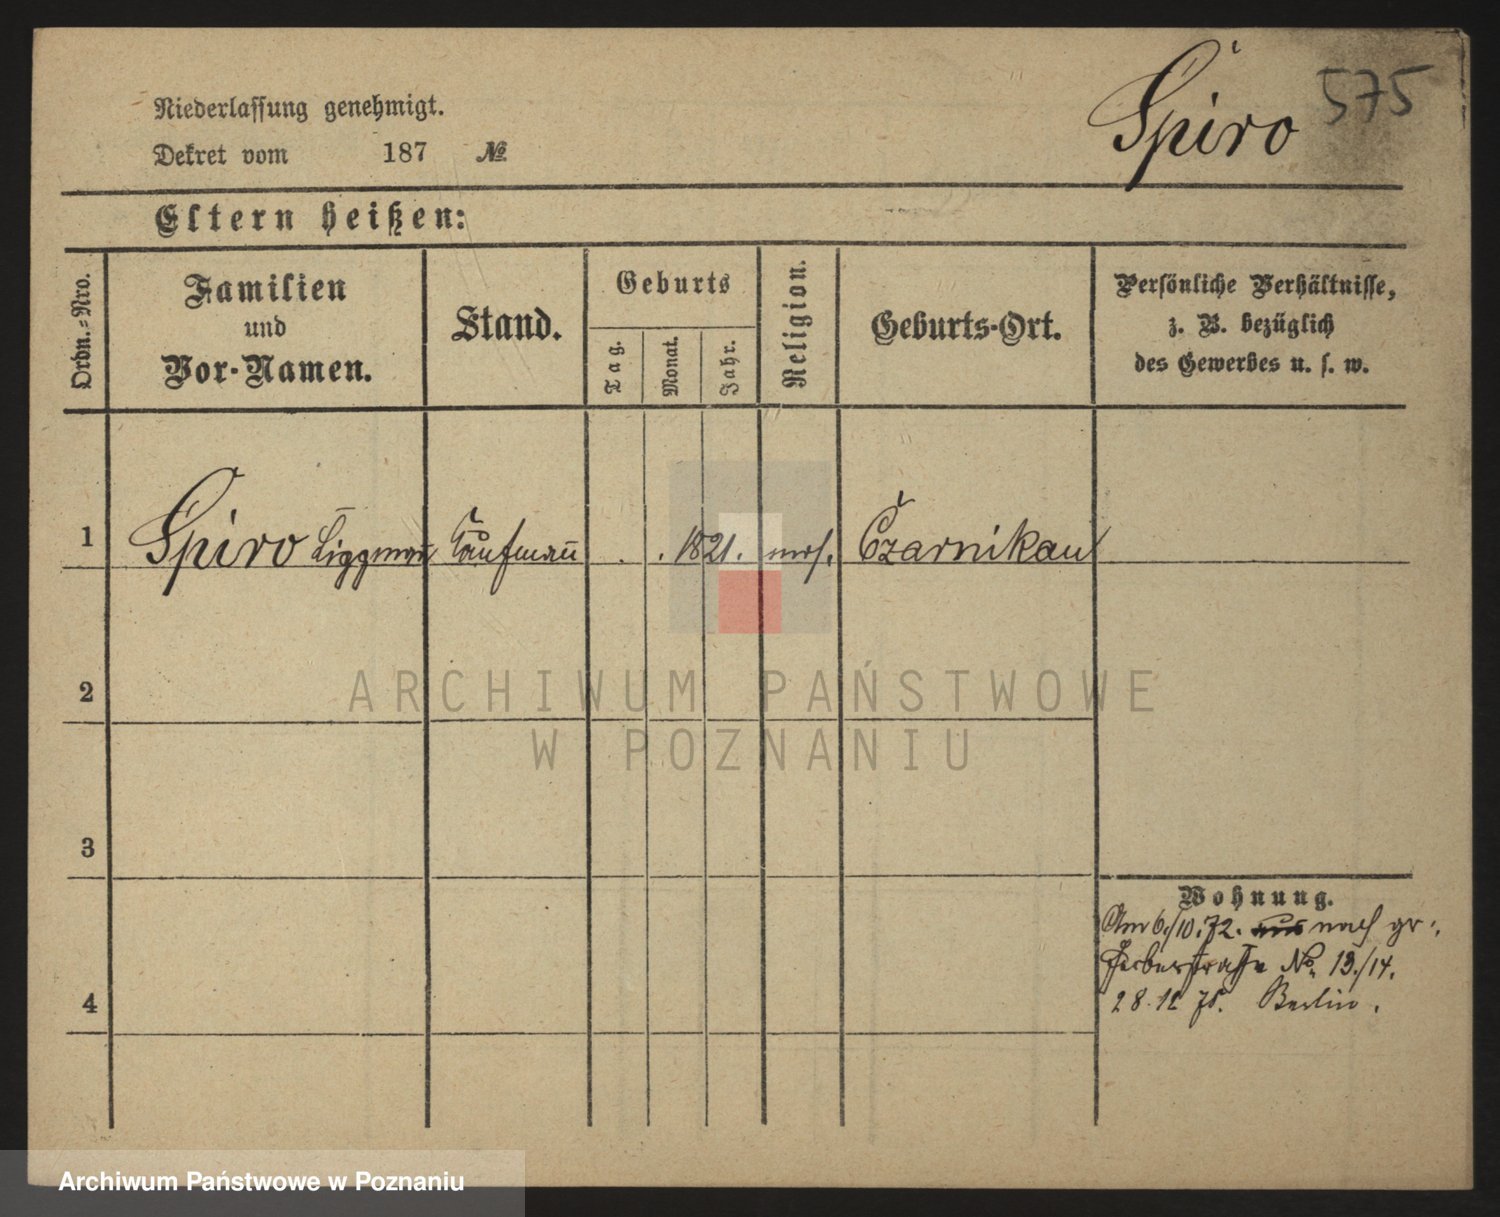 Spiro 575
Niederlassung genehmigt.
Dekret vom 187 №
Eltern heißen:
Ordn.-Nro.
Familien
und
Vor-Namen.
Stand.
Geburts
Tag.
Monat.
Jahr.
Religion.
Geburts-Ort.
Persönliche Verhältnisse,
z. B. bezüglich
des Gewerbes u. s. w.
1 Spiro Kaufmañ . . 1821. mos. Czarnikau
2
ARCHIWUM PAŃSTWOWE
W POZNANIU
3
Wohnung.
Am 6./10.72. aus nach gr.
No. 13./14.
4
28.12 75. Berlin.
Archiwum Państwowe w Poznaniu